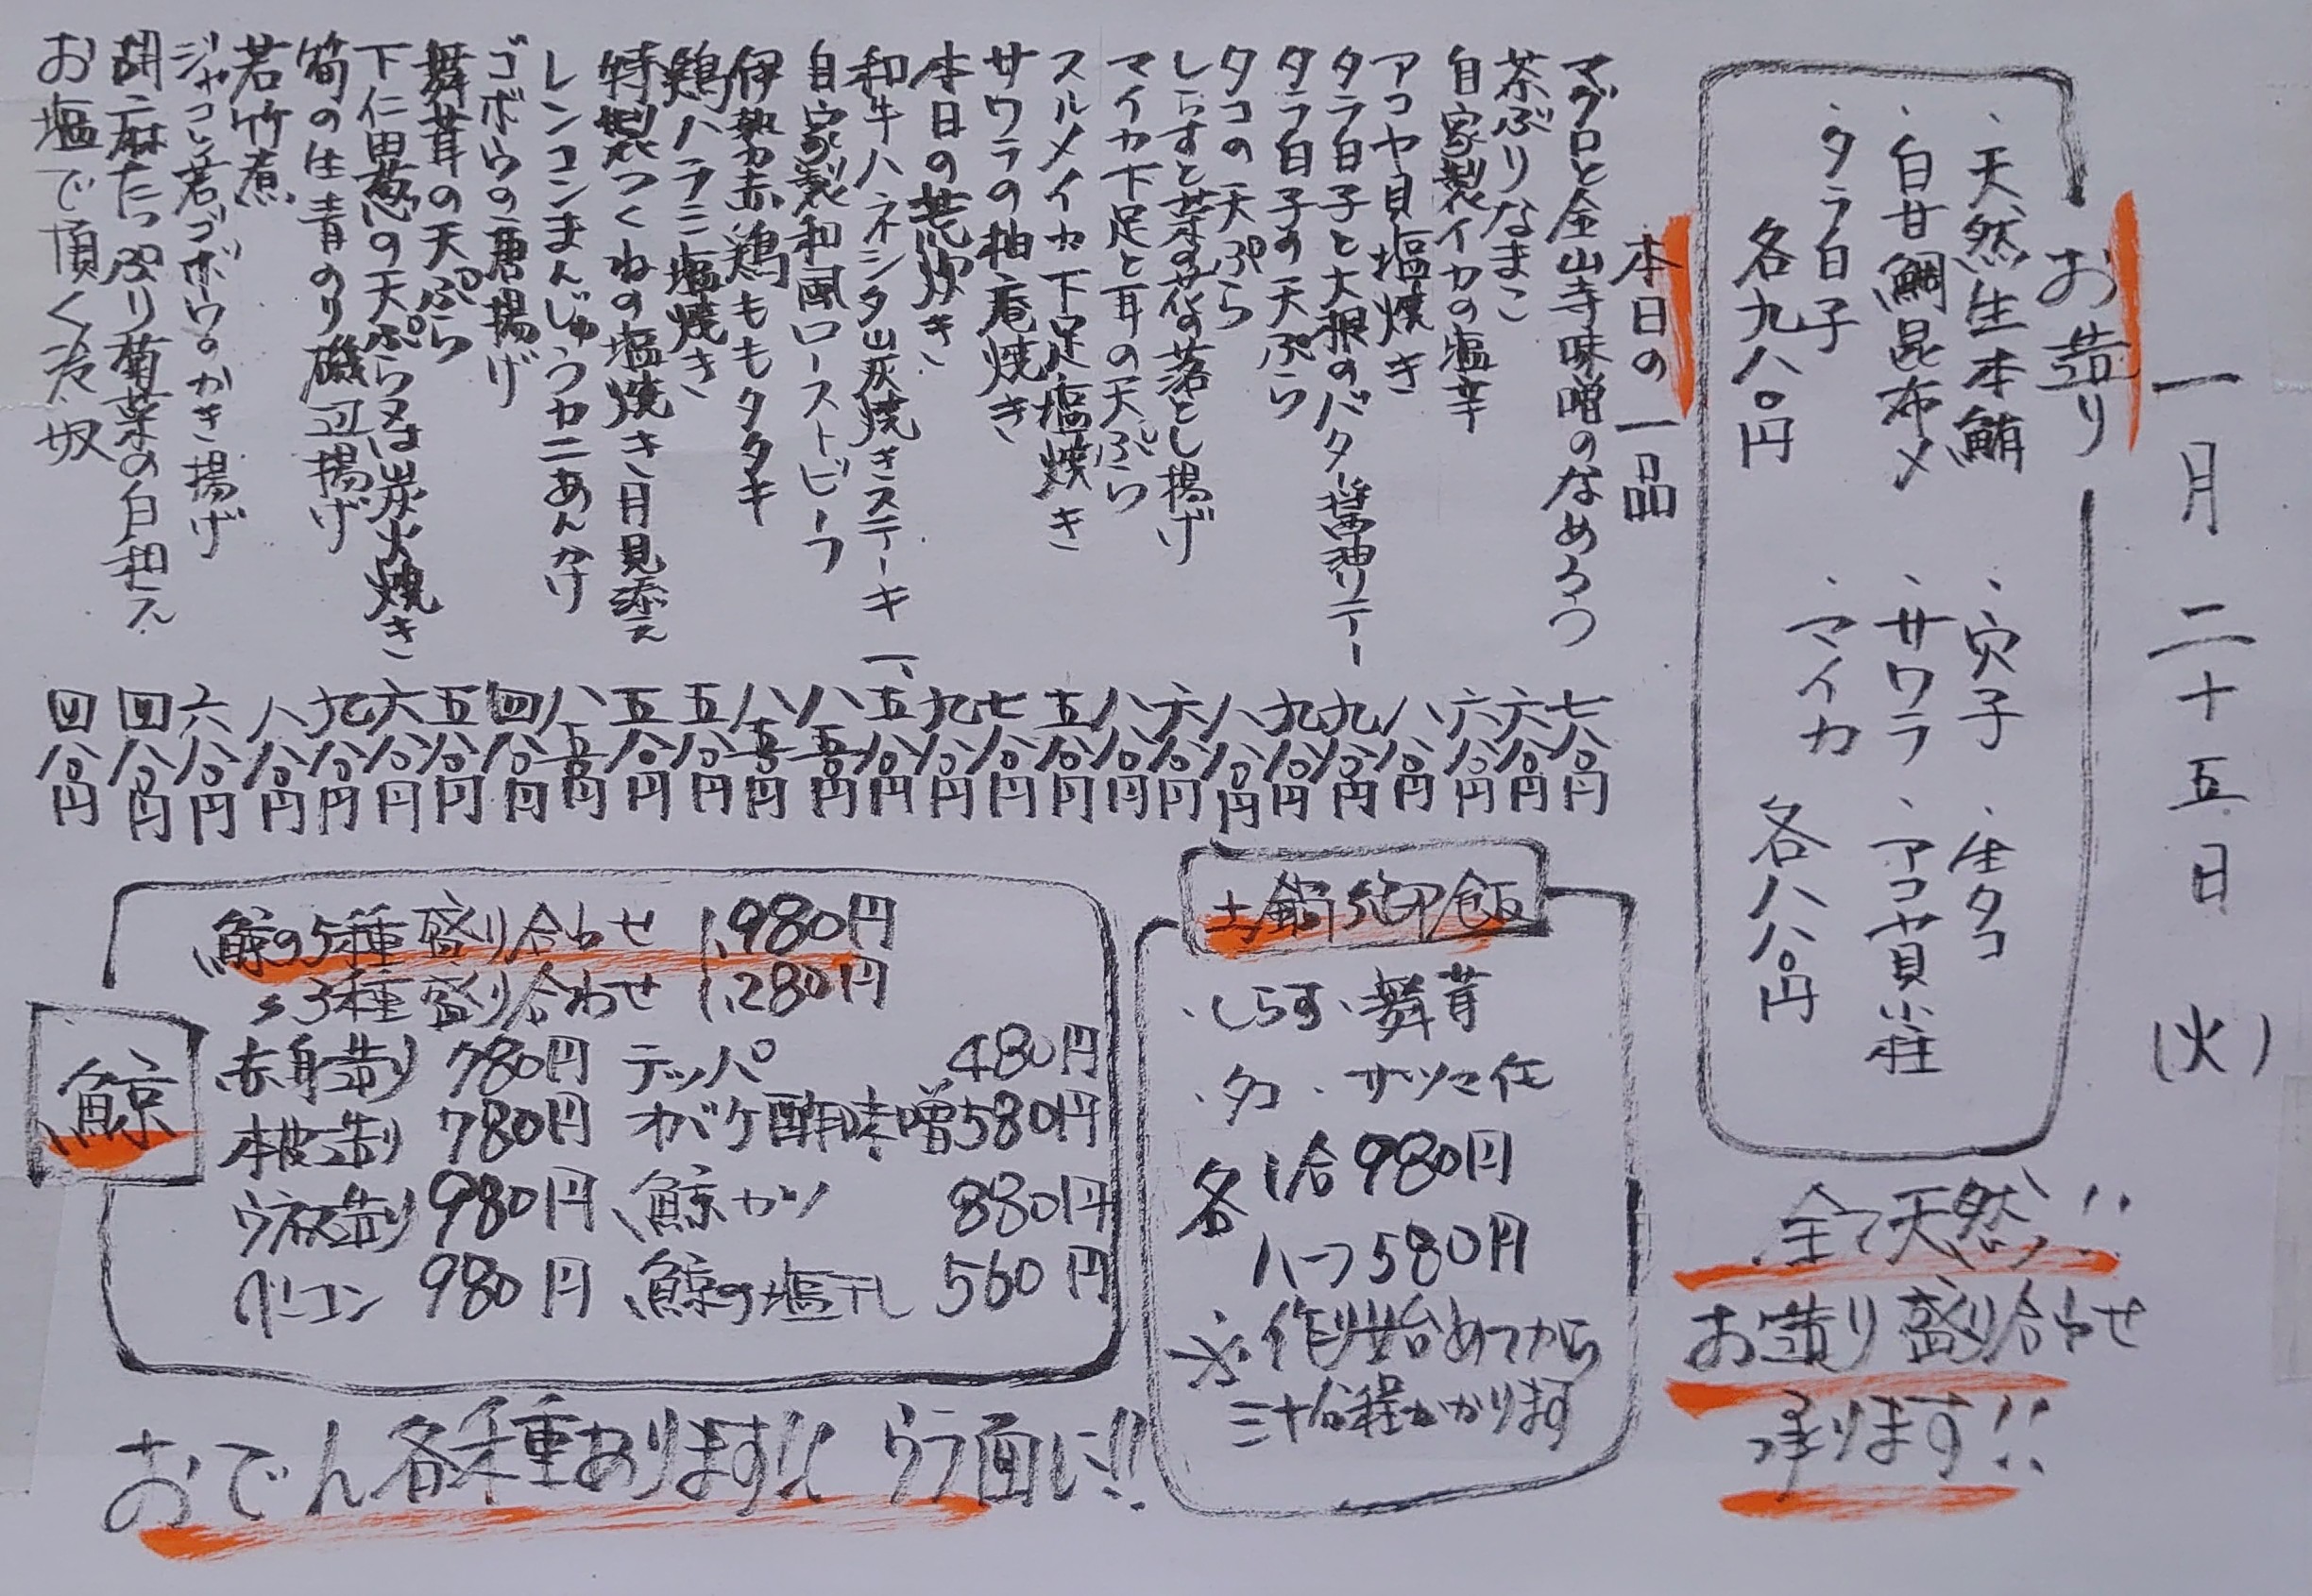 一月二十五日(火)
お造り
・天然生本鮪
・白甘鯛昆布〆
・タラ白子
各九八〇円
・穴子
・生タコ
・サワラ
・アコヤ貝小柱
・マイカ
各八八〇円
全て天然!!
お造り盛り合わせ
承ります!!
本日の一品
マグロと金山寺味噌のなめろう 七八〇円
茶ぶりなまこ 六八〇円
自家製イカの塩辛 六八〇円
アコヤ貝塩焼き 八八〇円
タラ白子と大根のバター醤油ソテー 九八〇円
タラ白子の天ぷら 九八〇円
タコの天ぷら 八八〇円
しらすと菜の花の落とし揚げ 六八〇円
マイカ下足と耳の天ぷら 八八〇円
スルメイカ下足塩焼き 五八〇円
サワラの柚庵焼き 七八〇円
本日の荒炊き 九八〇円
和牛ハネシタ炭焼きステーキ 一、五八〇円
自家製和風ローストビーフ 八五〇円
伊勢赤鶏ももタタキ 八五〇円
鶏ハラミ塩焼き 五八〇円
特製つくねの塩焼き 月見添え 五八〇円
レンコンまんじゅうカニあんかけ 八五〇円
ゴボウの唐揚げ 四八〇円
舞茸の天ぷら 五八〇円
下仁田葱の天ぷら又は炭火焼き 六八〇円
筍の生青のり磯辺揚げ 九八〇円
若竹煮 八八〇円
ジャコと若ゴボウのかき揚げ 六八〇円
胡麻たっぷり菊菜の白和え 四八〇円
お塩で頂く冷奴 四八〇円
土鍋御飯
・しらす・舞茸
・タコ・サツマ芋
各 1合 980円
ハーフ 580円
※作り始めてから
三十分程かかります
鯨
鯨の5種盛り合わせ 1,980円
〃3種盛り合わせ 1,280円
赤身造り 780円 テッパ 480円
本皮造り 780円 オバケ酢味噌 580円
ウネス造り 980円 鯨カツ 880円
ベーコン 980円 鯨の塩干し 560円
おでん各種あります!! ウラ面に!!